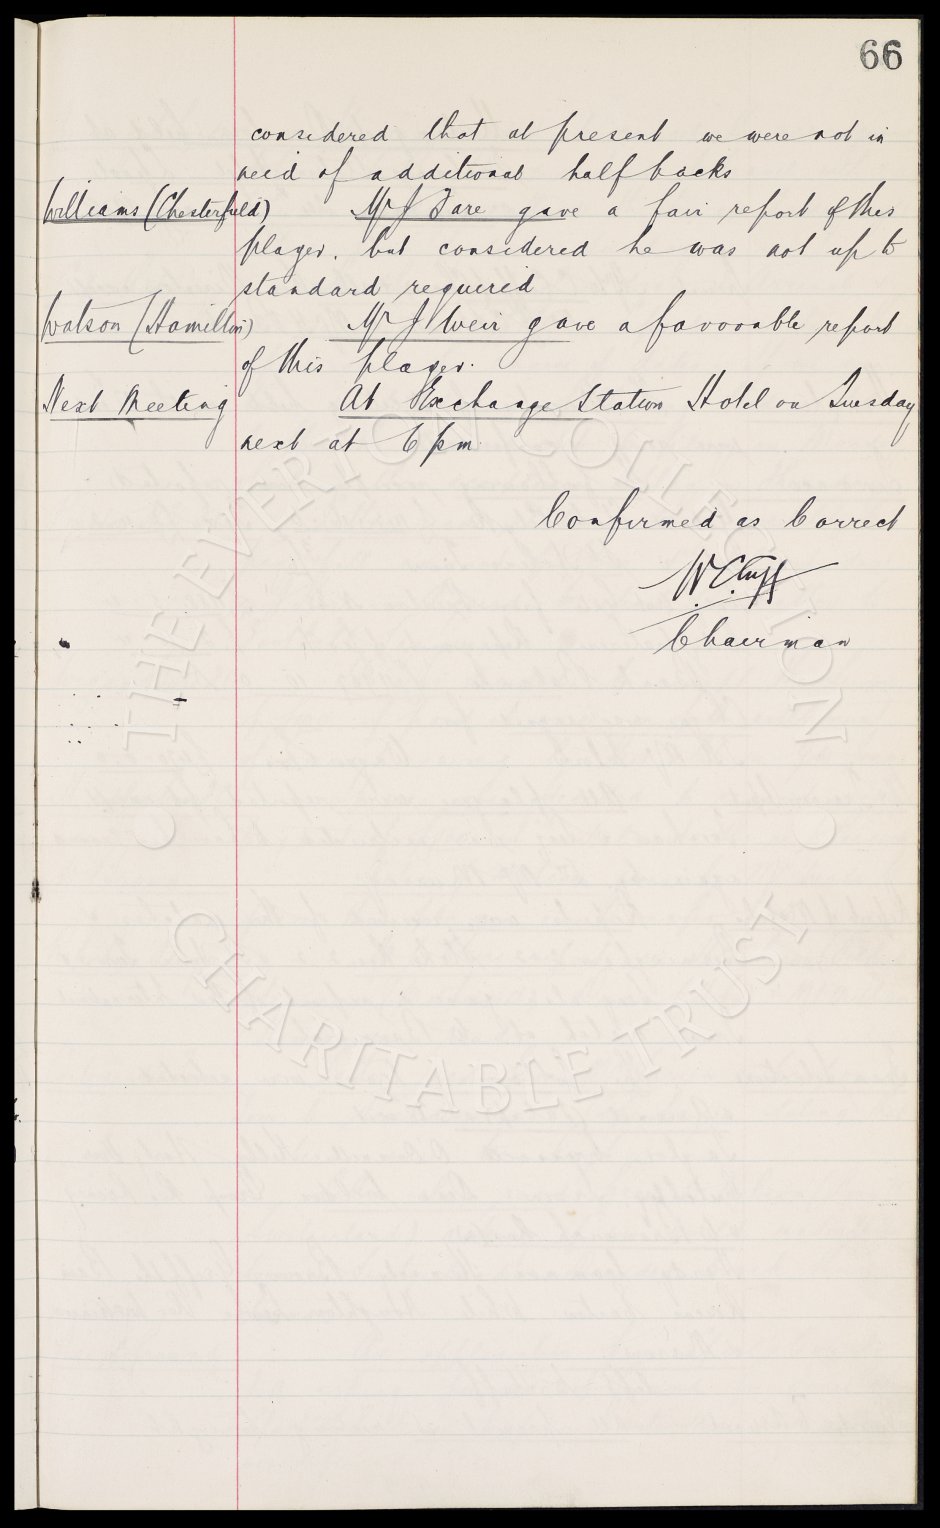 66
considered that at present we were not in
need of additional half backs
Williams (Chesterfield) Mr J Fare gave a fair report of this
player, but considered he was not up to
standard required
Watson (Hamilton) Mr J Weir gave a favourable report
of this player.
Next Meeting At Exchange Station Hotel on Tuesday
next at 6 pm.
Confirmed as Correct
W. C. Cuff
Chairman
THE EVERTON COLLECTION
CHARITABLE TRUST